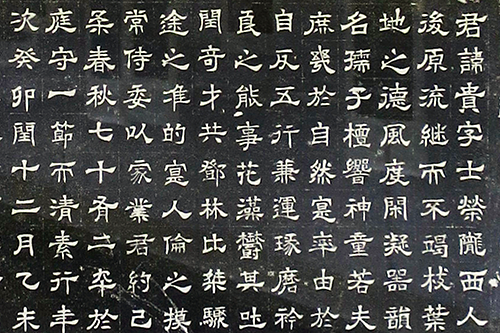 君諱貴字士榮隴西人
後原流継而不竭枝葉
地之德風度閑凝器韻
名孺子檀響神童若夫
庶幾於自然寔率由於
自反五行兼運琢磨衿
良之能事花藻欝其吐
閏奇才共鄧林比桀驅
途之准的寔人倫之摸
常侍委以家業君約己
柔春秋七十有二卒於
庭守一節而清素行年
次癸卯閏十二月乙未